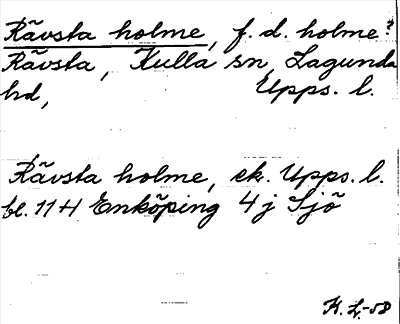 Rävsta holme, f. d. holme?
Rävsta, Kulla sn, Lagunda
hd, Upps. l.
Rävsta holme, ek. Upps. l.
bl. 11 H Enköping 4 j Sjö
K. L.-58